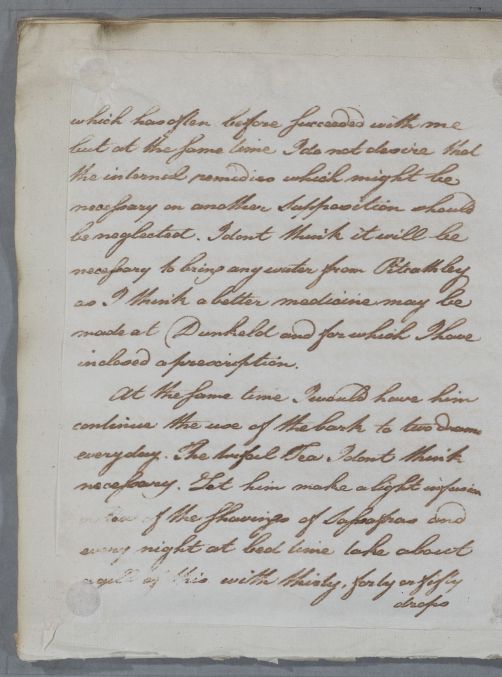 which has often before succeeded with me
but at the same time I do not desire that
the internal remidies which might be
necessary on another supposition should
be neglected. I dont think it will be
necessary to bring any water from Pitcathley
as I think a better medicine may be
made at Dunkeld and for which I have
inclosed a prescription.
At the same time I would have him
continue the use of the bark to two drams
every day. The Tea I dont think
necessary. Let him make a light infusion
of the shavings of Sassafras and
every night at bed time take about
a gill of this with thirty, forty or fifty
drops